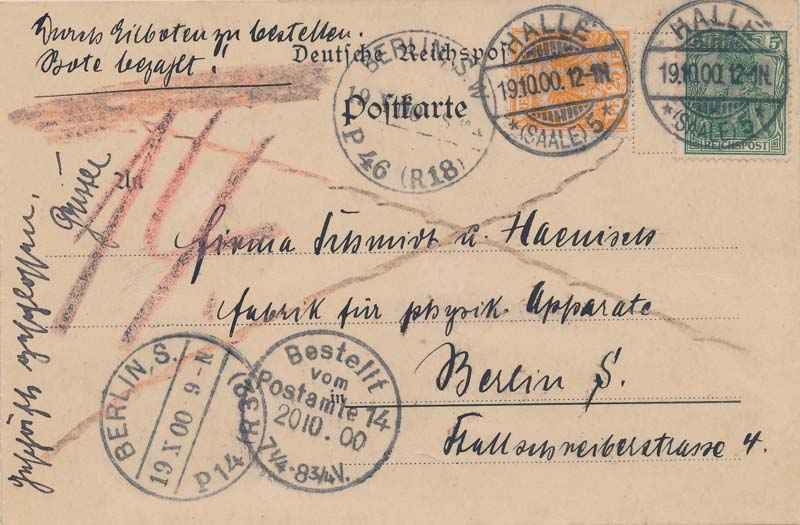 Durch Eilboten zu bestellen.
Bote bezahlt!
Deutsche Reichspost
Postkarte
BERLIN, S.W.
P 46 (R18)
HALLE
19.10.00. 12-1N.
*(SAALE) 5*
25
HALLE
19.10.00. 12-1N.
*(SAALE) 5*
5
REICHSPOST
An
Firma Schmidt u. Haensch
Fabrik für physik. Apparate
in
Berlin S.
Stallschreiberstrasse 4.
Geschäft geschlossen!
BERLIN, S.
19 X 00 9-N
P14 (R39)
Bestellt
vom
Postamte 14
20 10. 00
7 1/4 - 8 3/4 V.
14